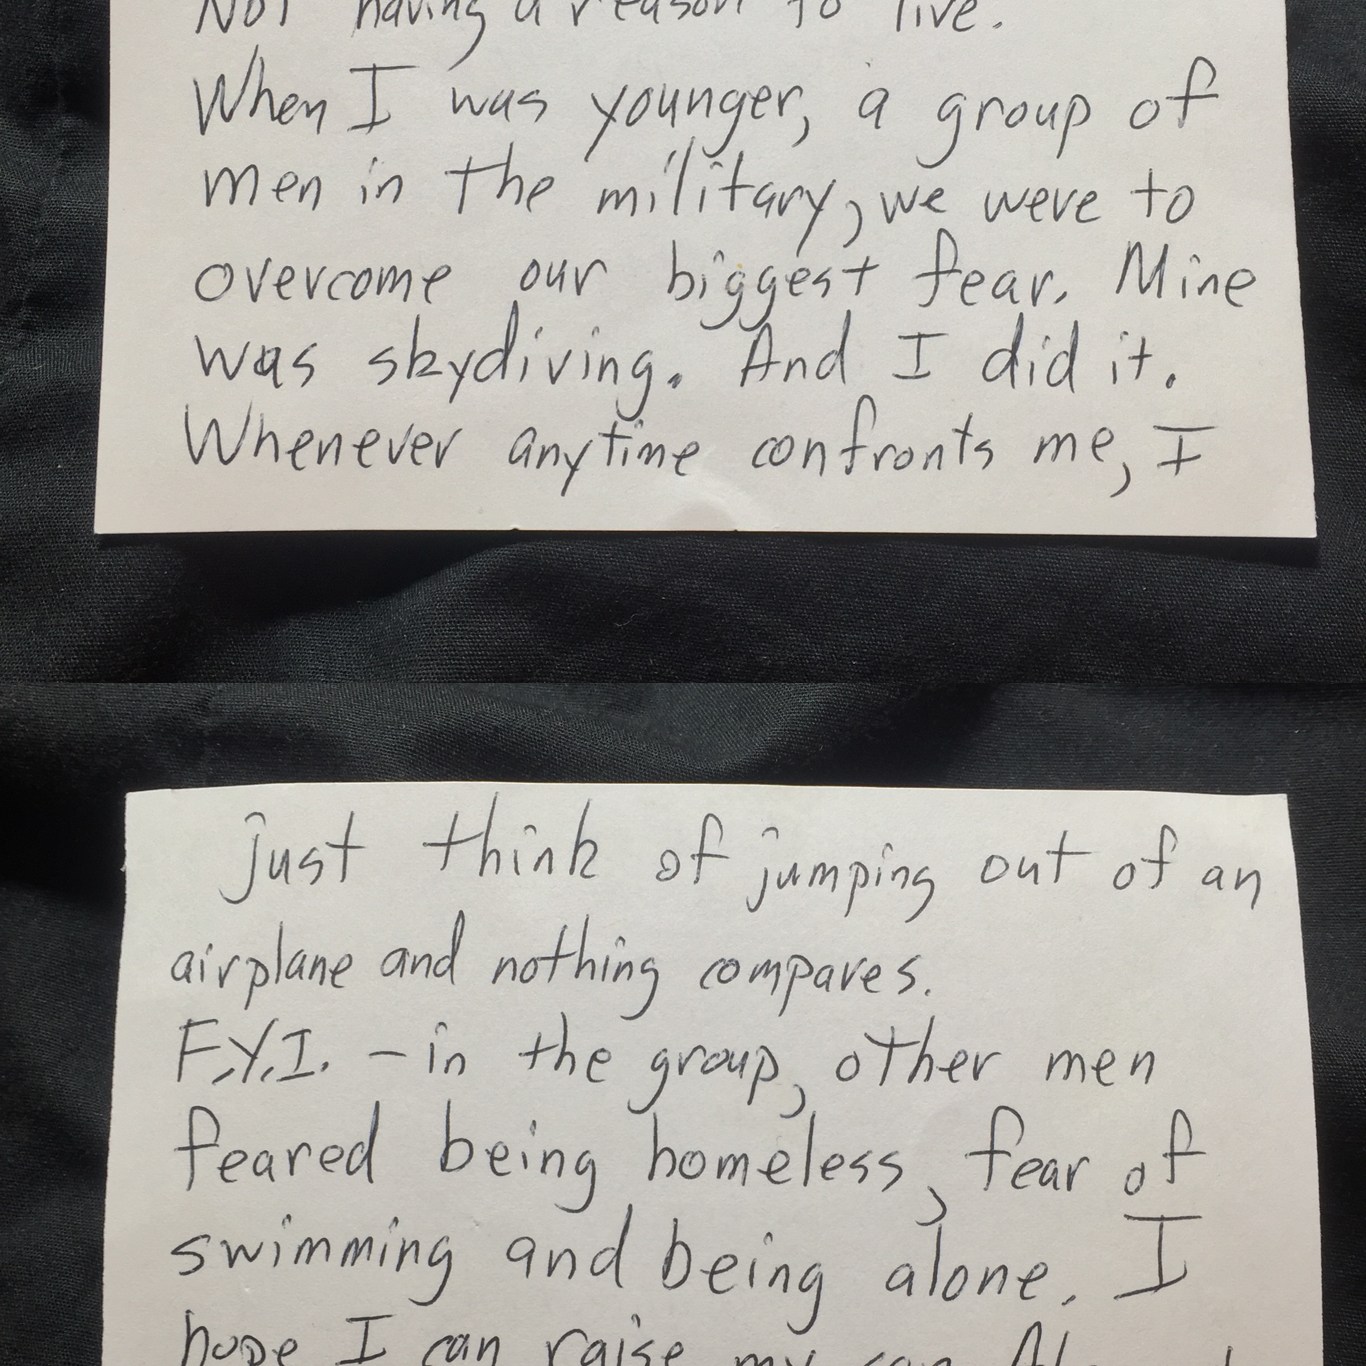 Not having a reason to live.
When I was younger, a group of
men in the military, we were to
overcome our biggest fear. Mine
was skydiving. And I did it.
Whenever anytime confronts me, I
just think of jumping out of an
airplane and nothing compares.
F.Y.I. - in the group, other men
feared being homeless, fear of
swimming and being alone. I
hope I can raise my son